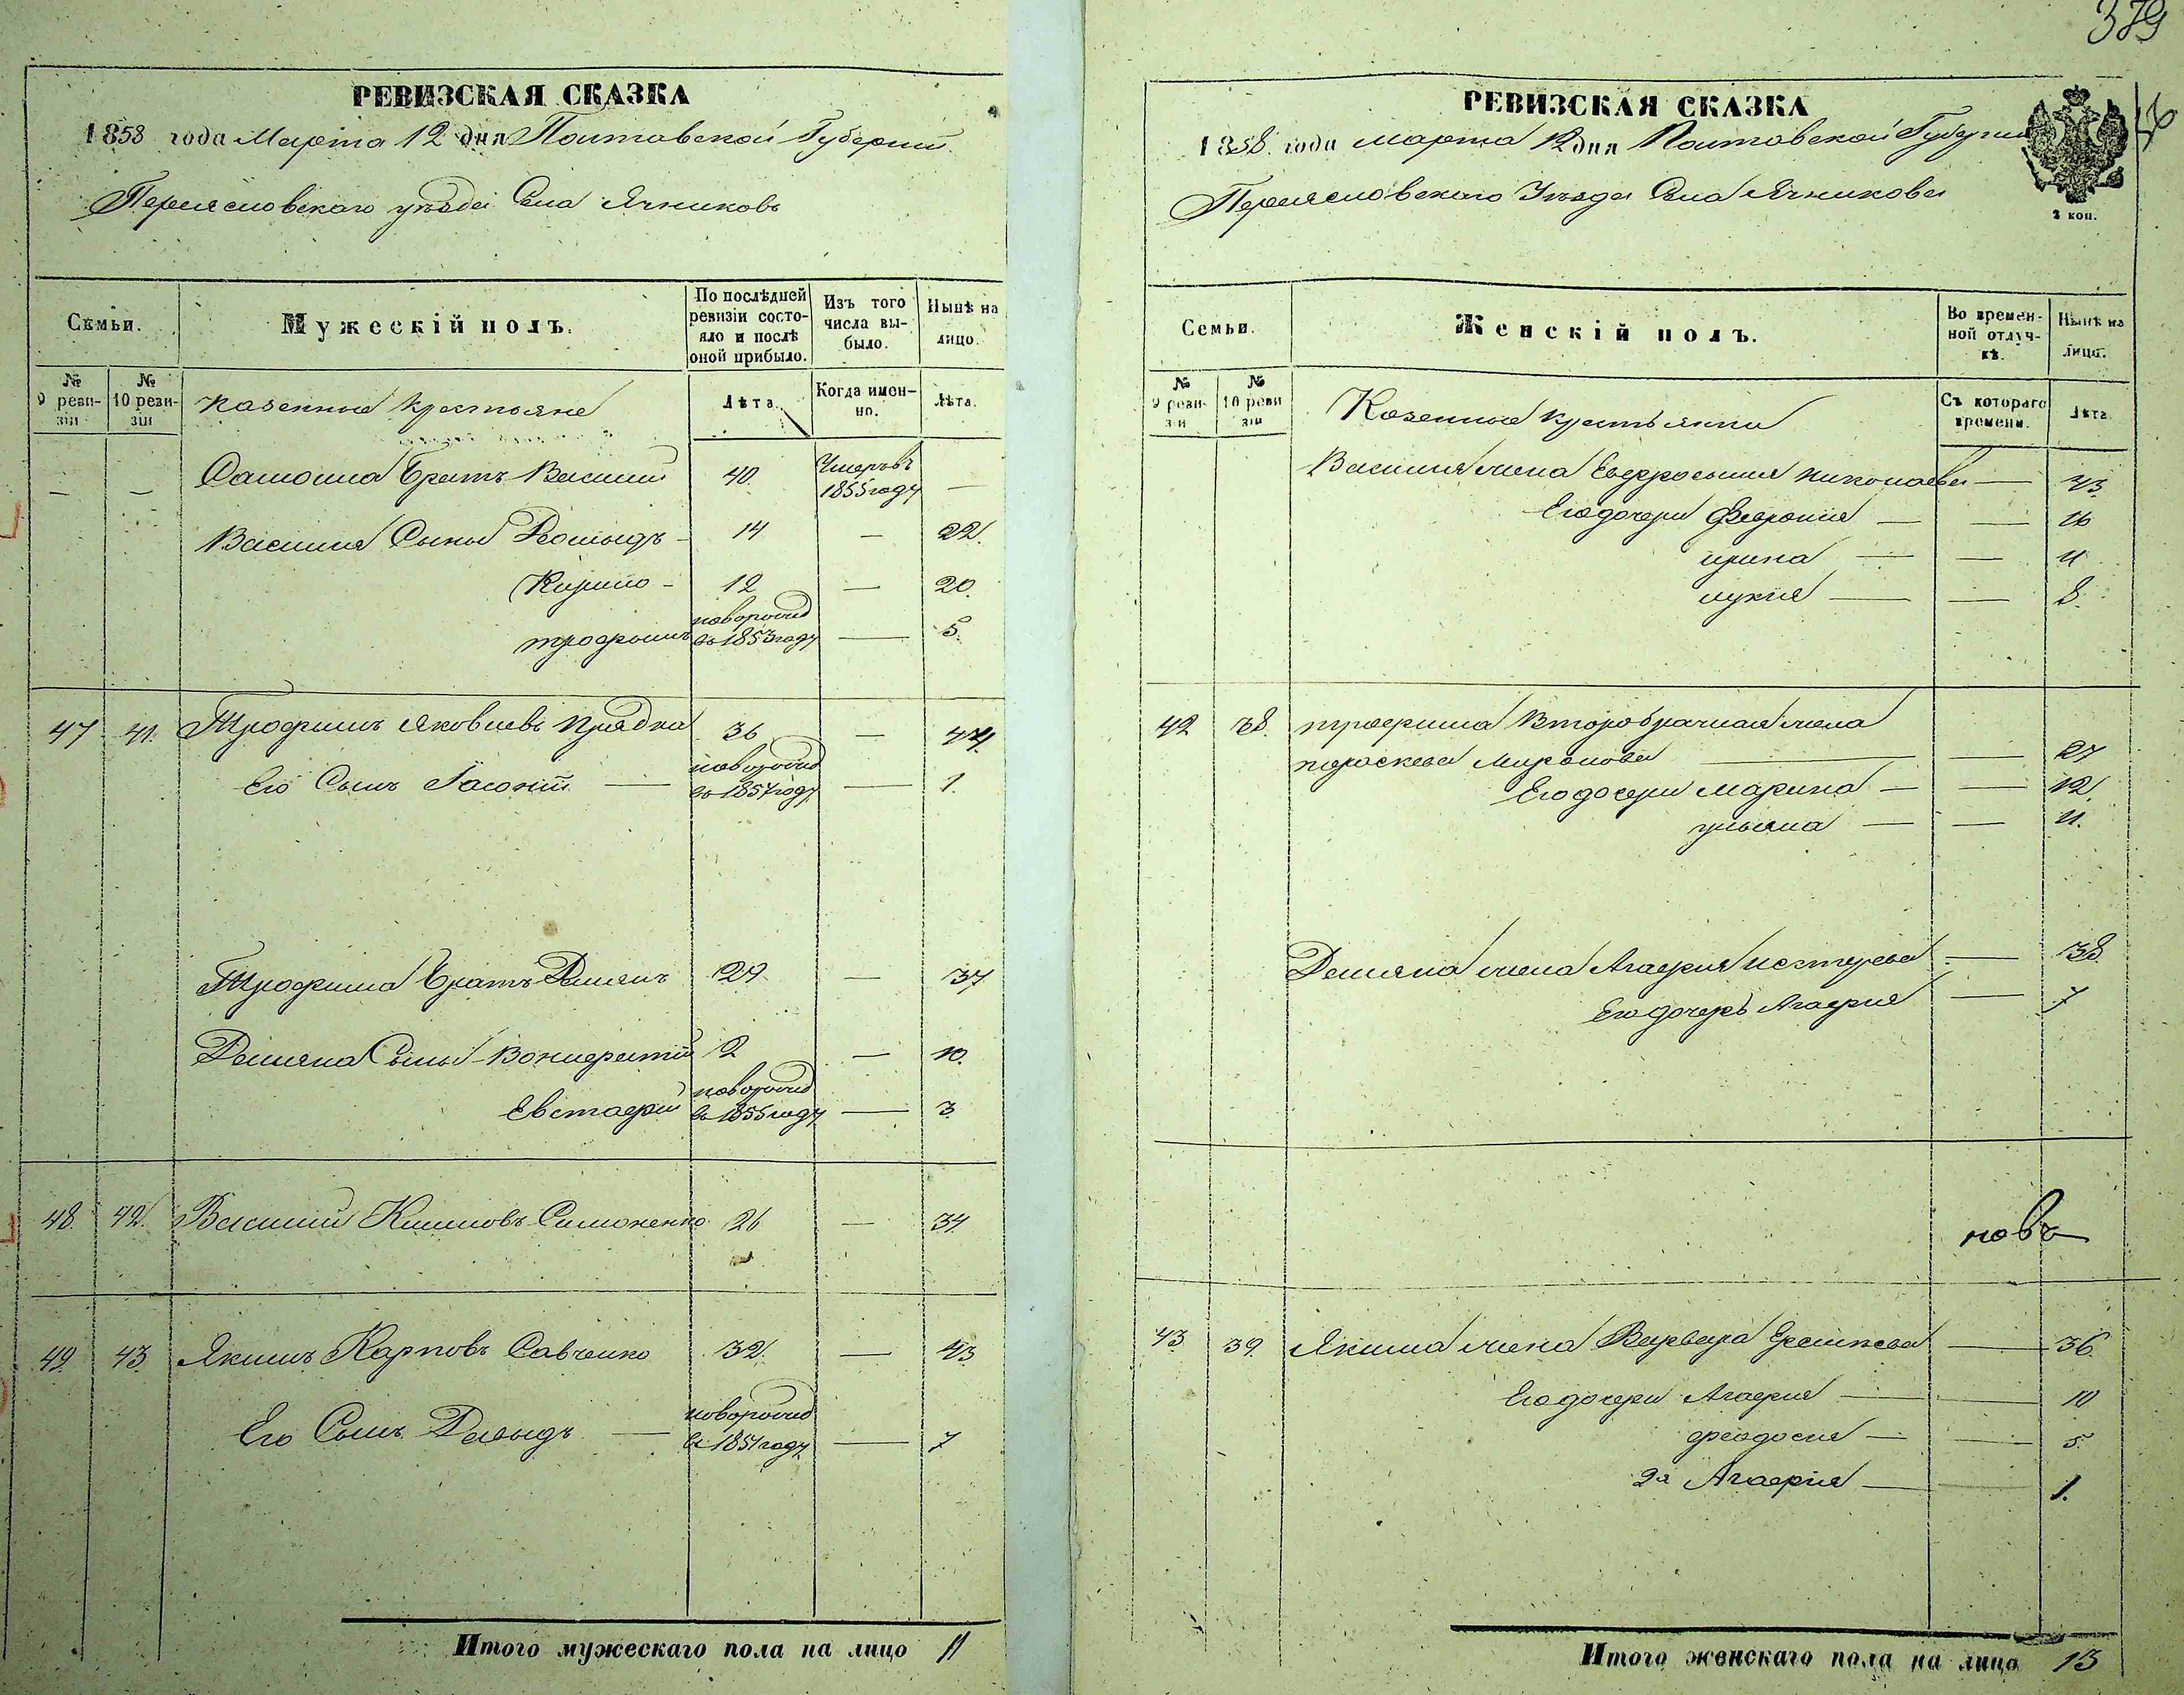 РЕВИЗСКАЯ СКАЗКА
1858 года Марта 12 дня Полтавской Губернии
Переясловскаго уезда Села Ячниковъ
Семьи.
Мужескій полъ.
По послѣдней ревизіи состояло и послѣ оной прибыло.
Изъ того числа выбыло.
Нынѣ на лицо.
№ 9 ревизіи
№ 10 ревизіи
Казенные крестьяне
Лѣта.
Когда именно.
Лѣта.
— — Самойла Братъ Василий 40 Умеръ въ 1855 году —
Василия Сыны Демыдъ - 14 — 22.
Кирило - 12 — 20.
трофимъ новорожд въ 1853 году — 5.
47 41. Трофимъ Яковлевъ Прядка 36 — 44
Его Сынъ — новорожд въ 1857 году — 1.
Трофима Братъ Демянъ 29 — 37
Демяна Сыны Вонифатій 2 — 10.
Евстафій новорожд въ 1855 году — 3
48. 42. Василий Климовъ Симоненко 26 — 34
49. 43 Якимъ Карповъ Савченко 32. — 43
Его Сынъ Давыдъ — новорожд въ 1851 году — 7
Итого мужескаго пола на лицо 11
379
РЕВИЗСКАЯ СКАЗКА
1858. года марта 12 дня Полтавской Губернии
Переясловскаго Уезда Села Ячникова
2 коп.
Семьи.
Женскій полъ.
Во временной отлучкѣ.
Нынѣ на лицо.
№ 9 ревизіи
№ 10 ревизіи
Казенные крестьянки
Съ котораго времени.
Лѣта.
Василия жена Евфросыния николаева — 43
Его дочери Феврония — — 16
ирина — — 11
лукия — — 8.
42 38. трофима Второбрачная жена
пораскева Миронова — — 27
Его дочери Марина — — 12.
ульяна — — 11.
Демяна жена Агафия нестерова — 38
Его дочеръ Агафия — 7
новъ
43 39. Якима жена Варвара Ефимова — 36.
Его дочери Агафия — — 10
феодосия — — 5.
2я Агафия — — 1.
Итого женскаго пола на лицо 13